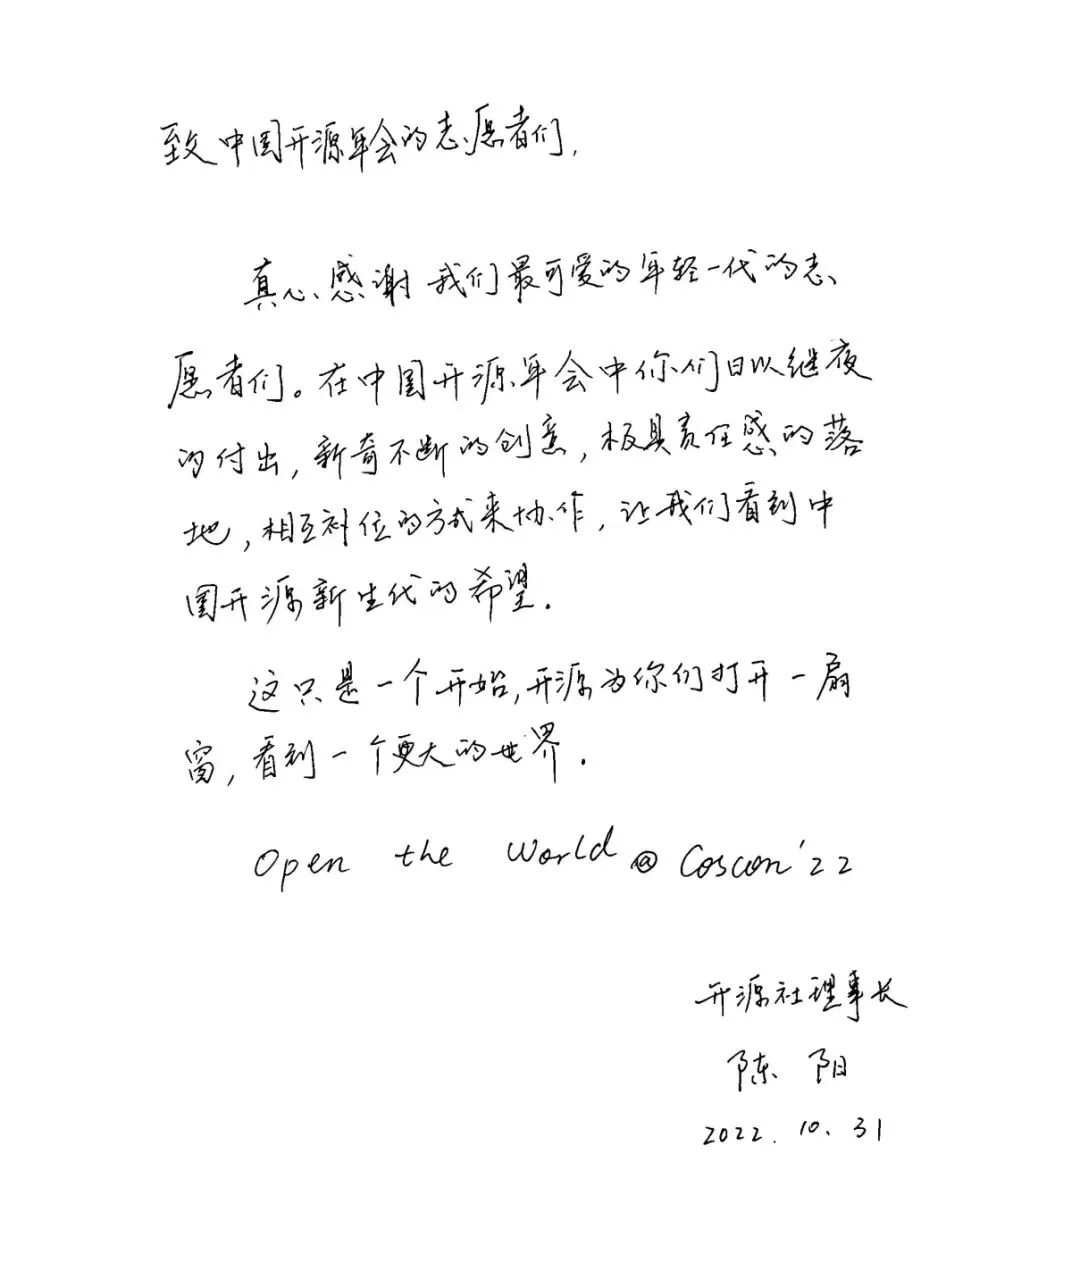 致中国开源年会的志愿者们，
真心感谢我们最可爱的年轻一代的志
愿者们。在中国开源年会中你们日以继夜
的付出，新奇不断的创意，极具责任感的落
地，相互补位的方式来协作，让我们看到中
国开源新生代的希望.
这只是一个开始，开源为你们打开一扇
窗，看到一个更大的世界.
Open the World @ Coscon'22
开源社理事长
陈阳
2022.10.31